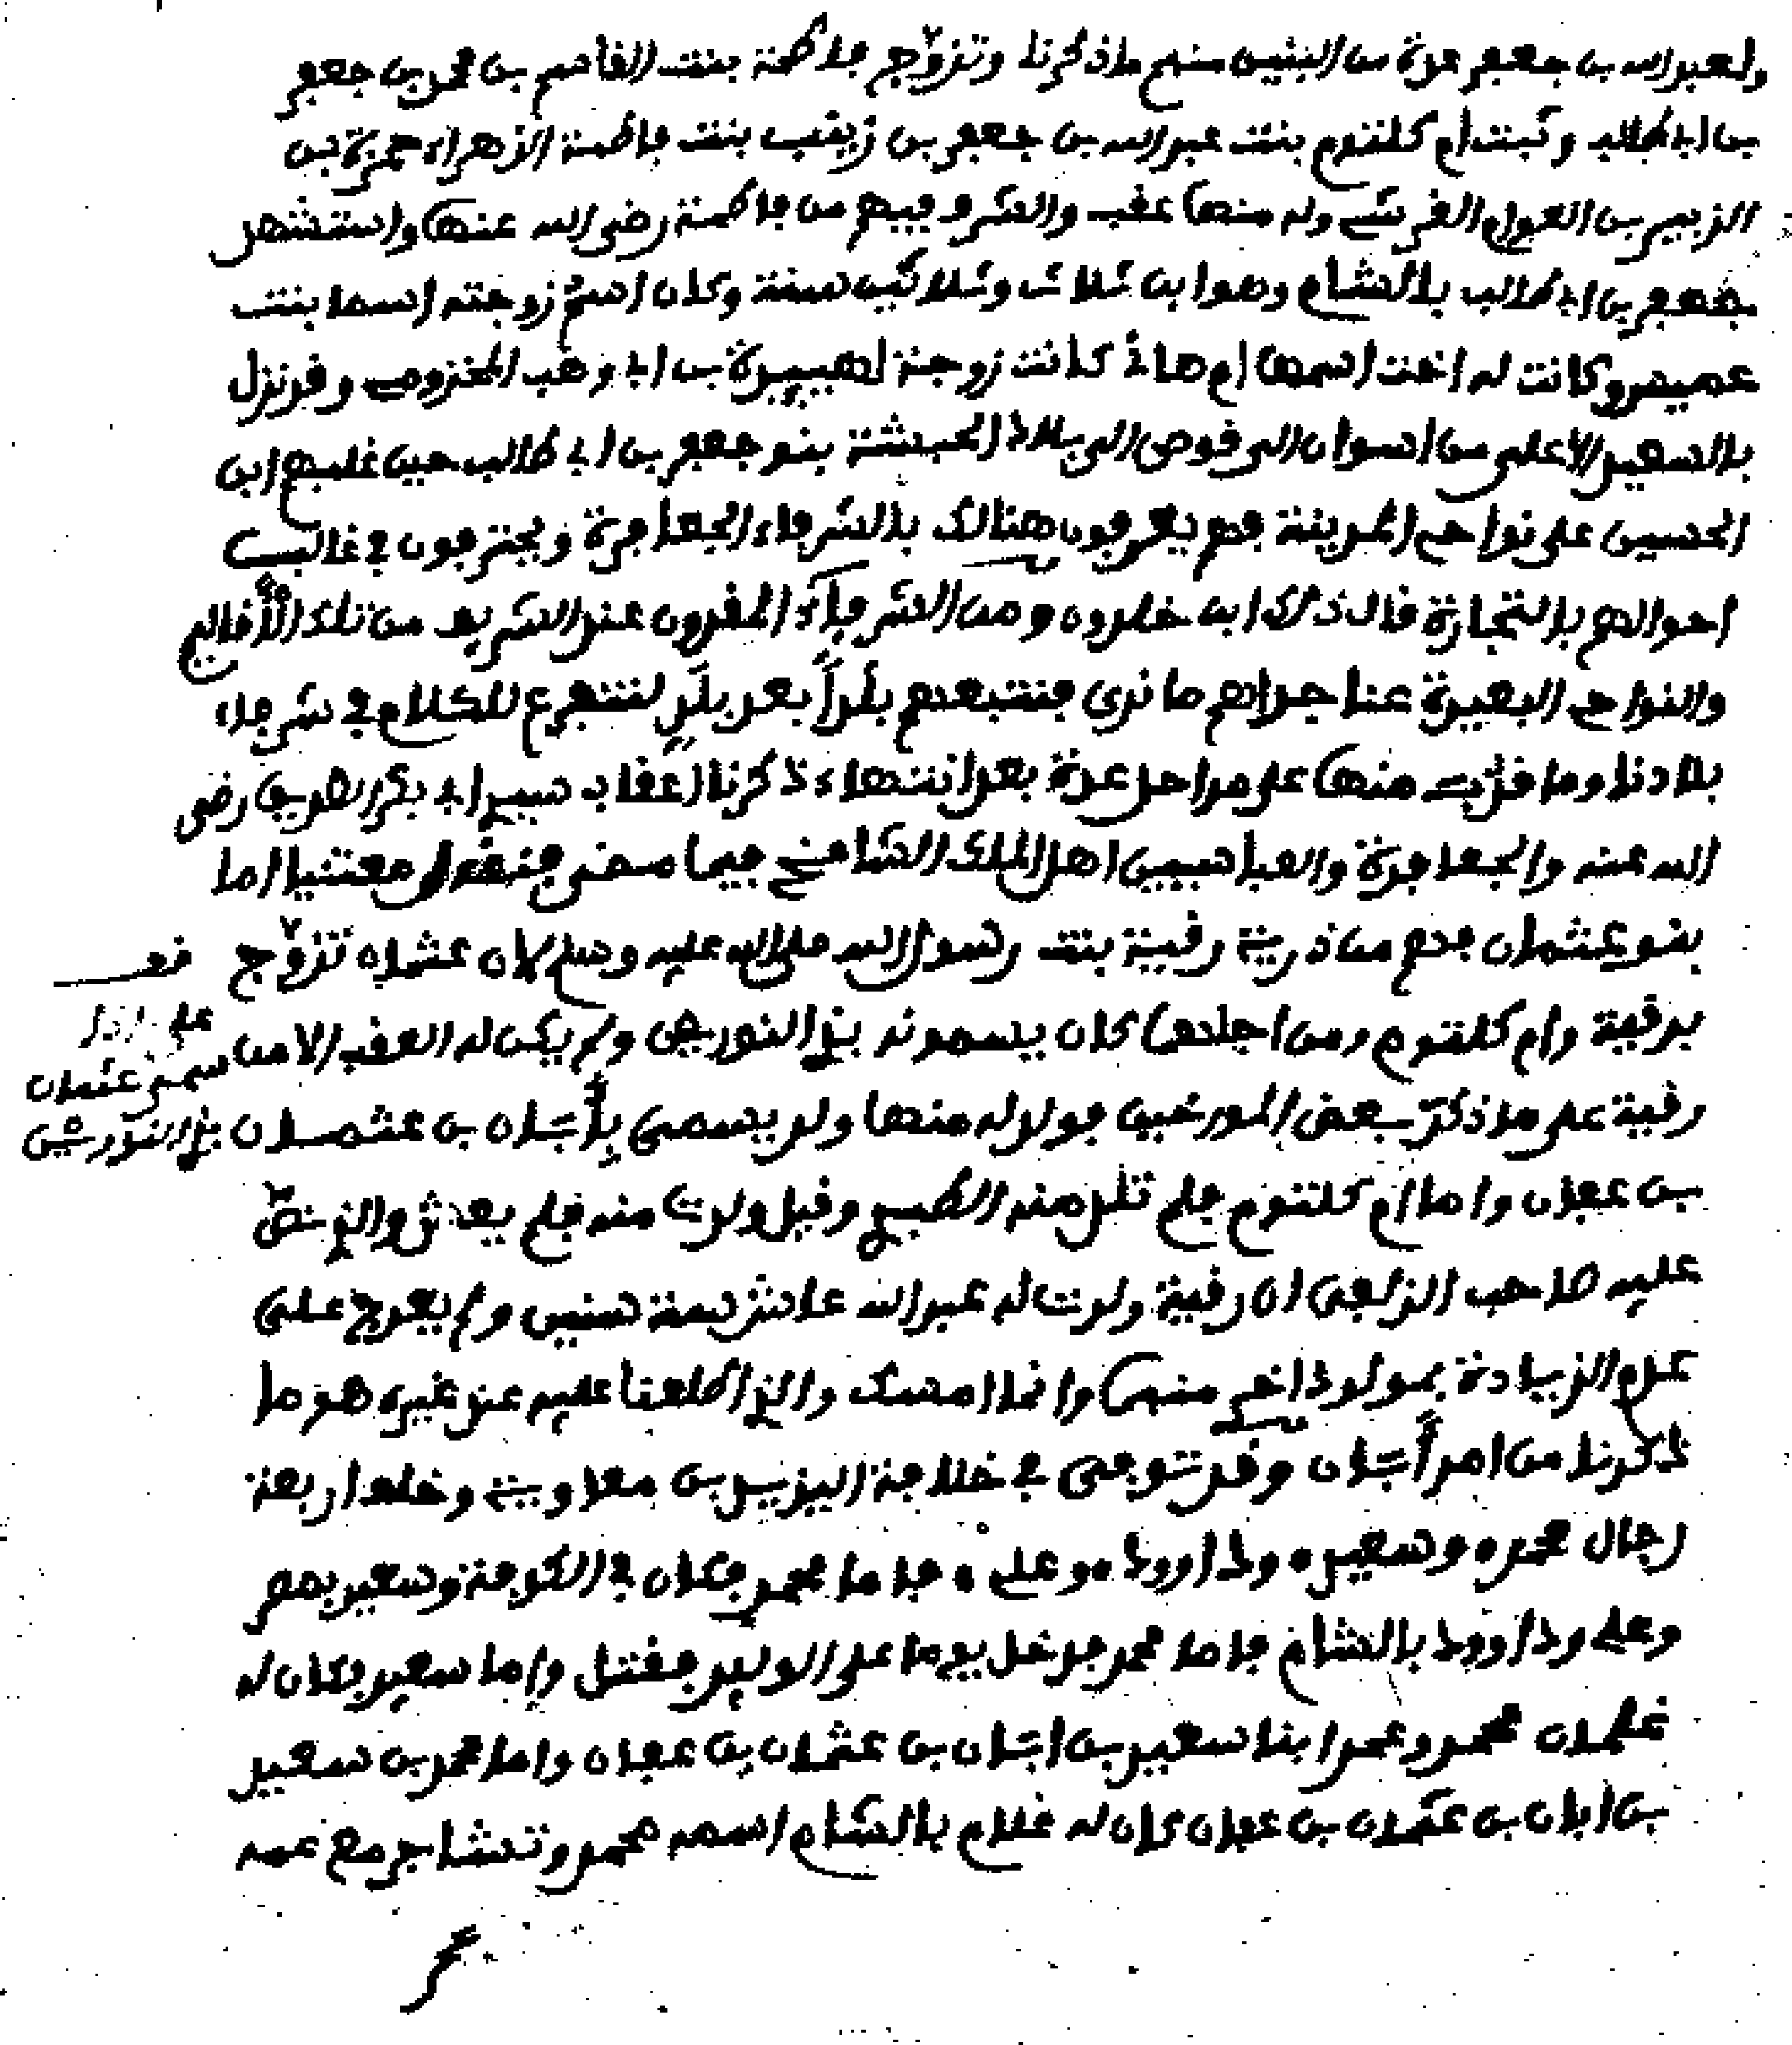 ولعبد الله بن جعفر عدة من البنين منهم ما ذكرنا وتزوّج فاطمة بنت القاسم بن محمد بن جعفر
بن ابي طالب وبنت أم كلثوم بنت عبد الله بن جعفر بن زينب بنت فاطمة الزهراء حمزة بن
الزبير بن العوام القرشي وله منها عقب والشرف فيهم من فاطمة رضي الله عنها واستشهد
جعفر بن ابي طالب بالشام وهو ابن ثلاث وثلاثين سنة وكان اسم زوجته اسما بنت
عميس وكانت له اخت اسمها ام هانئ كانت زوجة لهبيرة بن ابي وهب المخزومي وقد نزل
بالسعيد الأعلى من اسوان الى قوص الى بلاد الحبشة بنو جعفر بن ابي طالب حين غلبهم ابن
الحسين على نواحي المدينة فهم يعرفون هنالك بالشرفاء الجعافرة ويحترفون في غالب
احوالهم بالتجارة قال ذلك ابن خلدون ومن الشرفاء المقرون عند الشريف من تلك الأقاليم
والنواحي البعيدة عنا جدا هم ما نرى فنتبعهم بلداً بعد بلدٍ لنتفرع للكلام في شرفاء
بلادنا وما قربت منها على مراحل عدة بعد انتهاء ذكرنا اعقاب سيد ابي بكر الصديق رضي
الله عنه والجعافرة والعباسيين اهل الملك الشامخ فيما مضى فنقول معتنيا اما
بنو عثمان فهم من ذرية رقية بنت رسول الله صلى الله عليه وسلم لان عثمان تزوّج
برقية وام كلثوم ومن اجلهما كان يسمونه بذي النورين ولم يكن له العقب الا من
رقية على ما ذكره بعض المورخين فولد له منها ولد يسمى بأبان بن عثمان
بن عفان واما ام كلثوم فلم تلد منه الطبيع وقيل ولدت منه فلم يعش والذي نصّ
عليه صاحب الزلفى ان رقية ولدت له عبد الله عاش ستة سنين ولم يعرج على
عدم الزيادة بمولود اخر منهما وانما امسك والذي اطلعنا عليه عند غيره هو ما
ذكرنا من امر أبان وقد توفى في خلافة اليزيد بن معاوية وخلف اربعة
رجال محمد وسعيد وداوود وعلي فاما محمد فكان في الكوفة وسعيد بمصر
وعلي وداوود بالشام فاما محمد فدخل يوما على الوليد فقتل واما سعيد فكان له
غلمان محمد وعمر ابنا سعيد بن ابان بن عثمان بن عفان واما محمد بن سعيد
بن ابان بن عثمان بن عفان كان له غلام بالشام اسمه محمد وتشاجر مع عمه
عمر
قف
على
سمي عثمان
بذي النورين